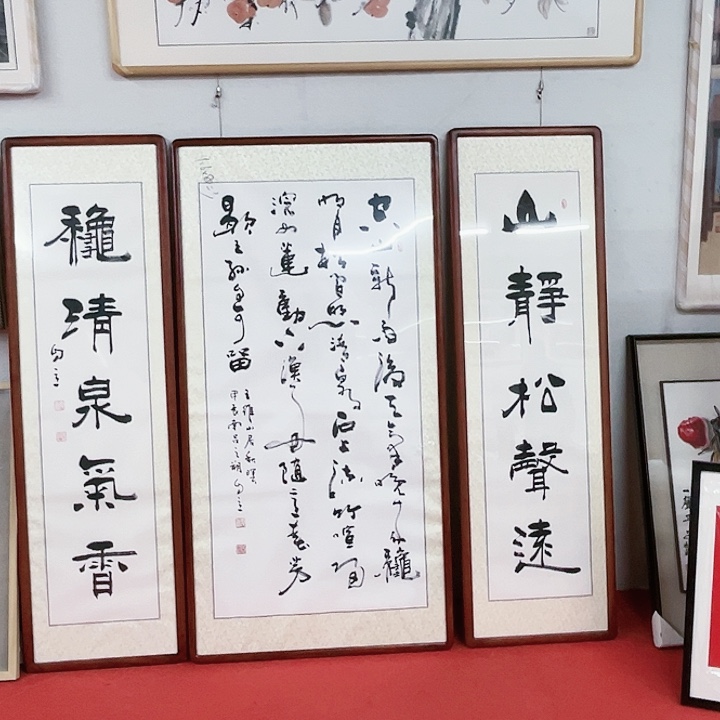 山靜松聲遠
空山新雨後天氣晚來龝
明月松間照清泉石上流竹喧歸
浣女蓮動下漁舟隨意春芳
歇王孫自可留
王維山居秋暝
龝清泉氣香